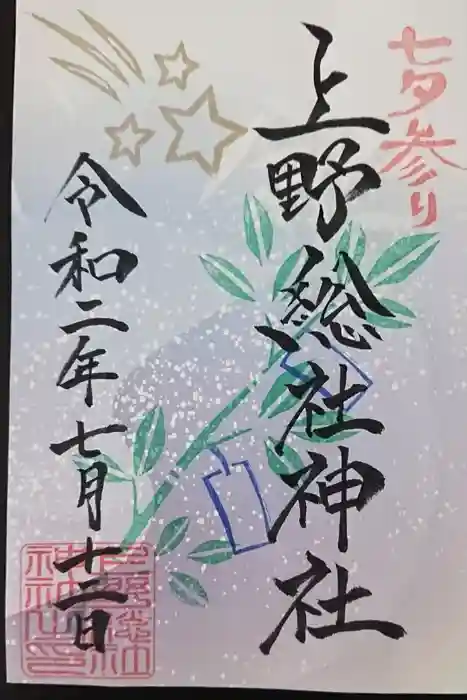 七夕参り
上野総社神社
令和二年七月十二日